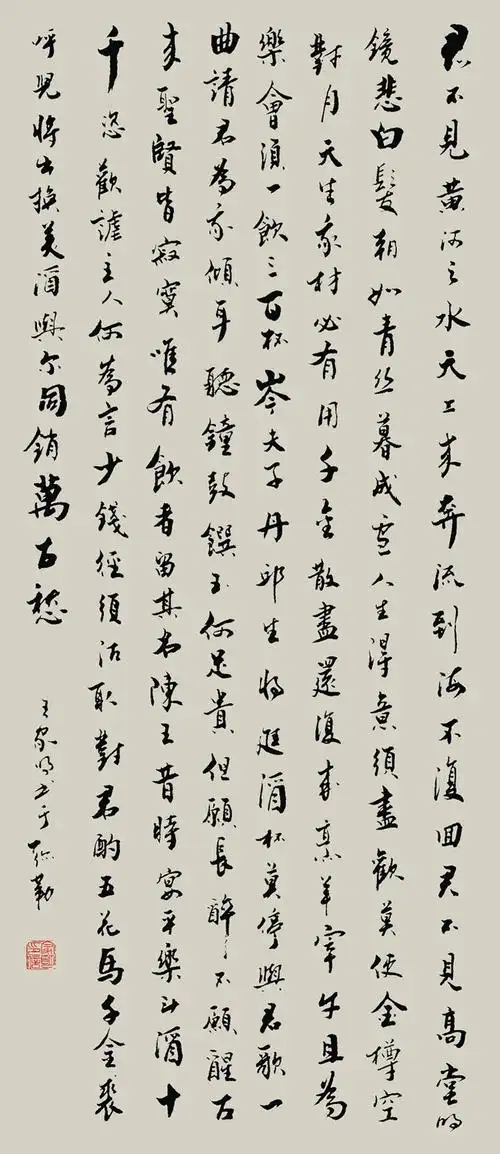 君不見黃河之水天上來奔流到海不復回君不見高堂明
鏡悲白髮朝如青絲暮成雪人生得意須盡歡莫使金樽空
對月天生我材必有用千金散盡還復來烹羊宰牛且為
樂會須一飲三百杯岑夫子丹邱生將進酒杯莫停與君歌一
曲請君為我傾耳聽鐘鼓饌玉何足貴但願長醉々不願醒古
來聖賢皆寂寞唯有飲者留其名陳王昔時宴平樂斗酒十
千恣歡謔主人何為言少錢徑須沽取對君酌五花馬千金裘
呼兒將出換美酒與爾同銷萬古愁
王家明书于弥勒